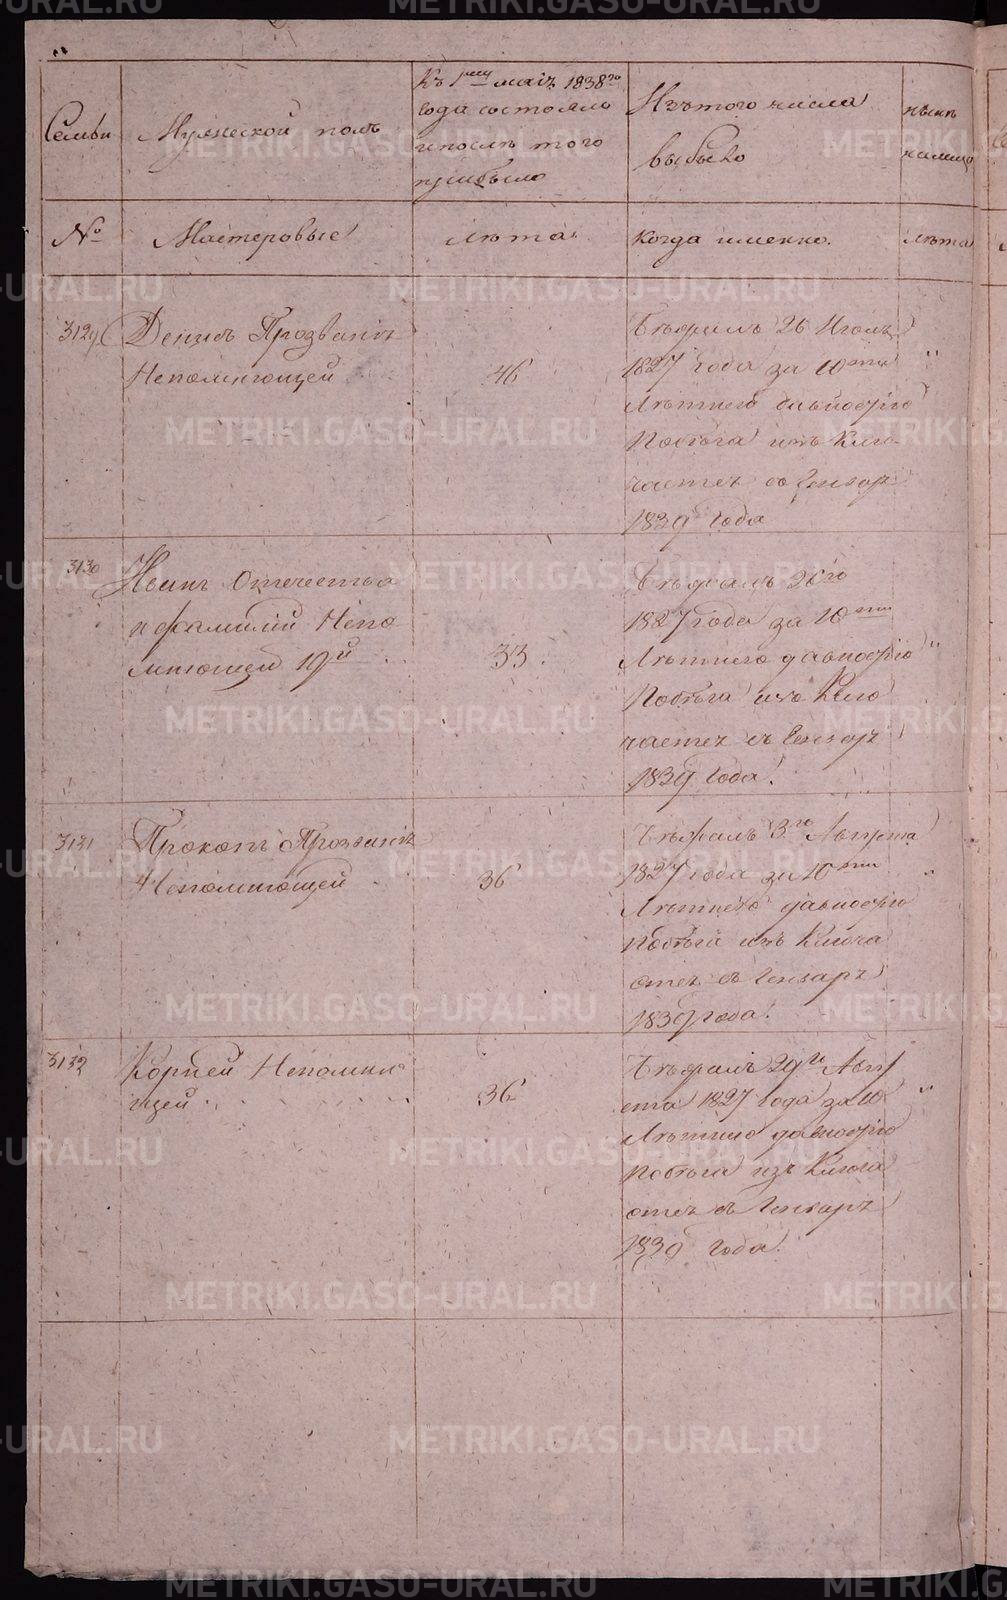 Семьи
Мужеской полъ
Къ 1му маія 1838го
года состояло
и послѣ того
прибыло
Изъ того числа
выбыло
нынѣ
на лицо
№
Мастеровые
лѣта
когда именно.
лѣта
3129
Денисъ Прозванія
Непомнющей
46
Бѣжалъ 26 Июля
1827 года за 10ти
лѣтнею давностію
побѣга изъ
1839 года
3130
Иванъ Отечества
и фамиліи Непо
мнющей 19й
33.
Бѣжалъ 26го
1827 года за 10ти
лѣтнею давностію
побѣга изъ
1839 года.
3131
Прокопъ Прозванія
Непомнющей
36
Бѣжалъ 3го Августа
1827 года за 10ти
лѣтнею давностію
побѣга изъ Ключа
1839 года.
3132
Корней Непомню
щей
36
Бѣжалъ 29го Авгу
ста 1827 года за 10
лѣтнею давностію
побѣга изъ Ключа
1839 года.
METRIKI.GASO-URAL.RU